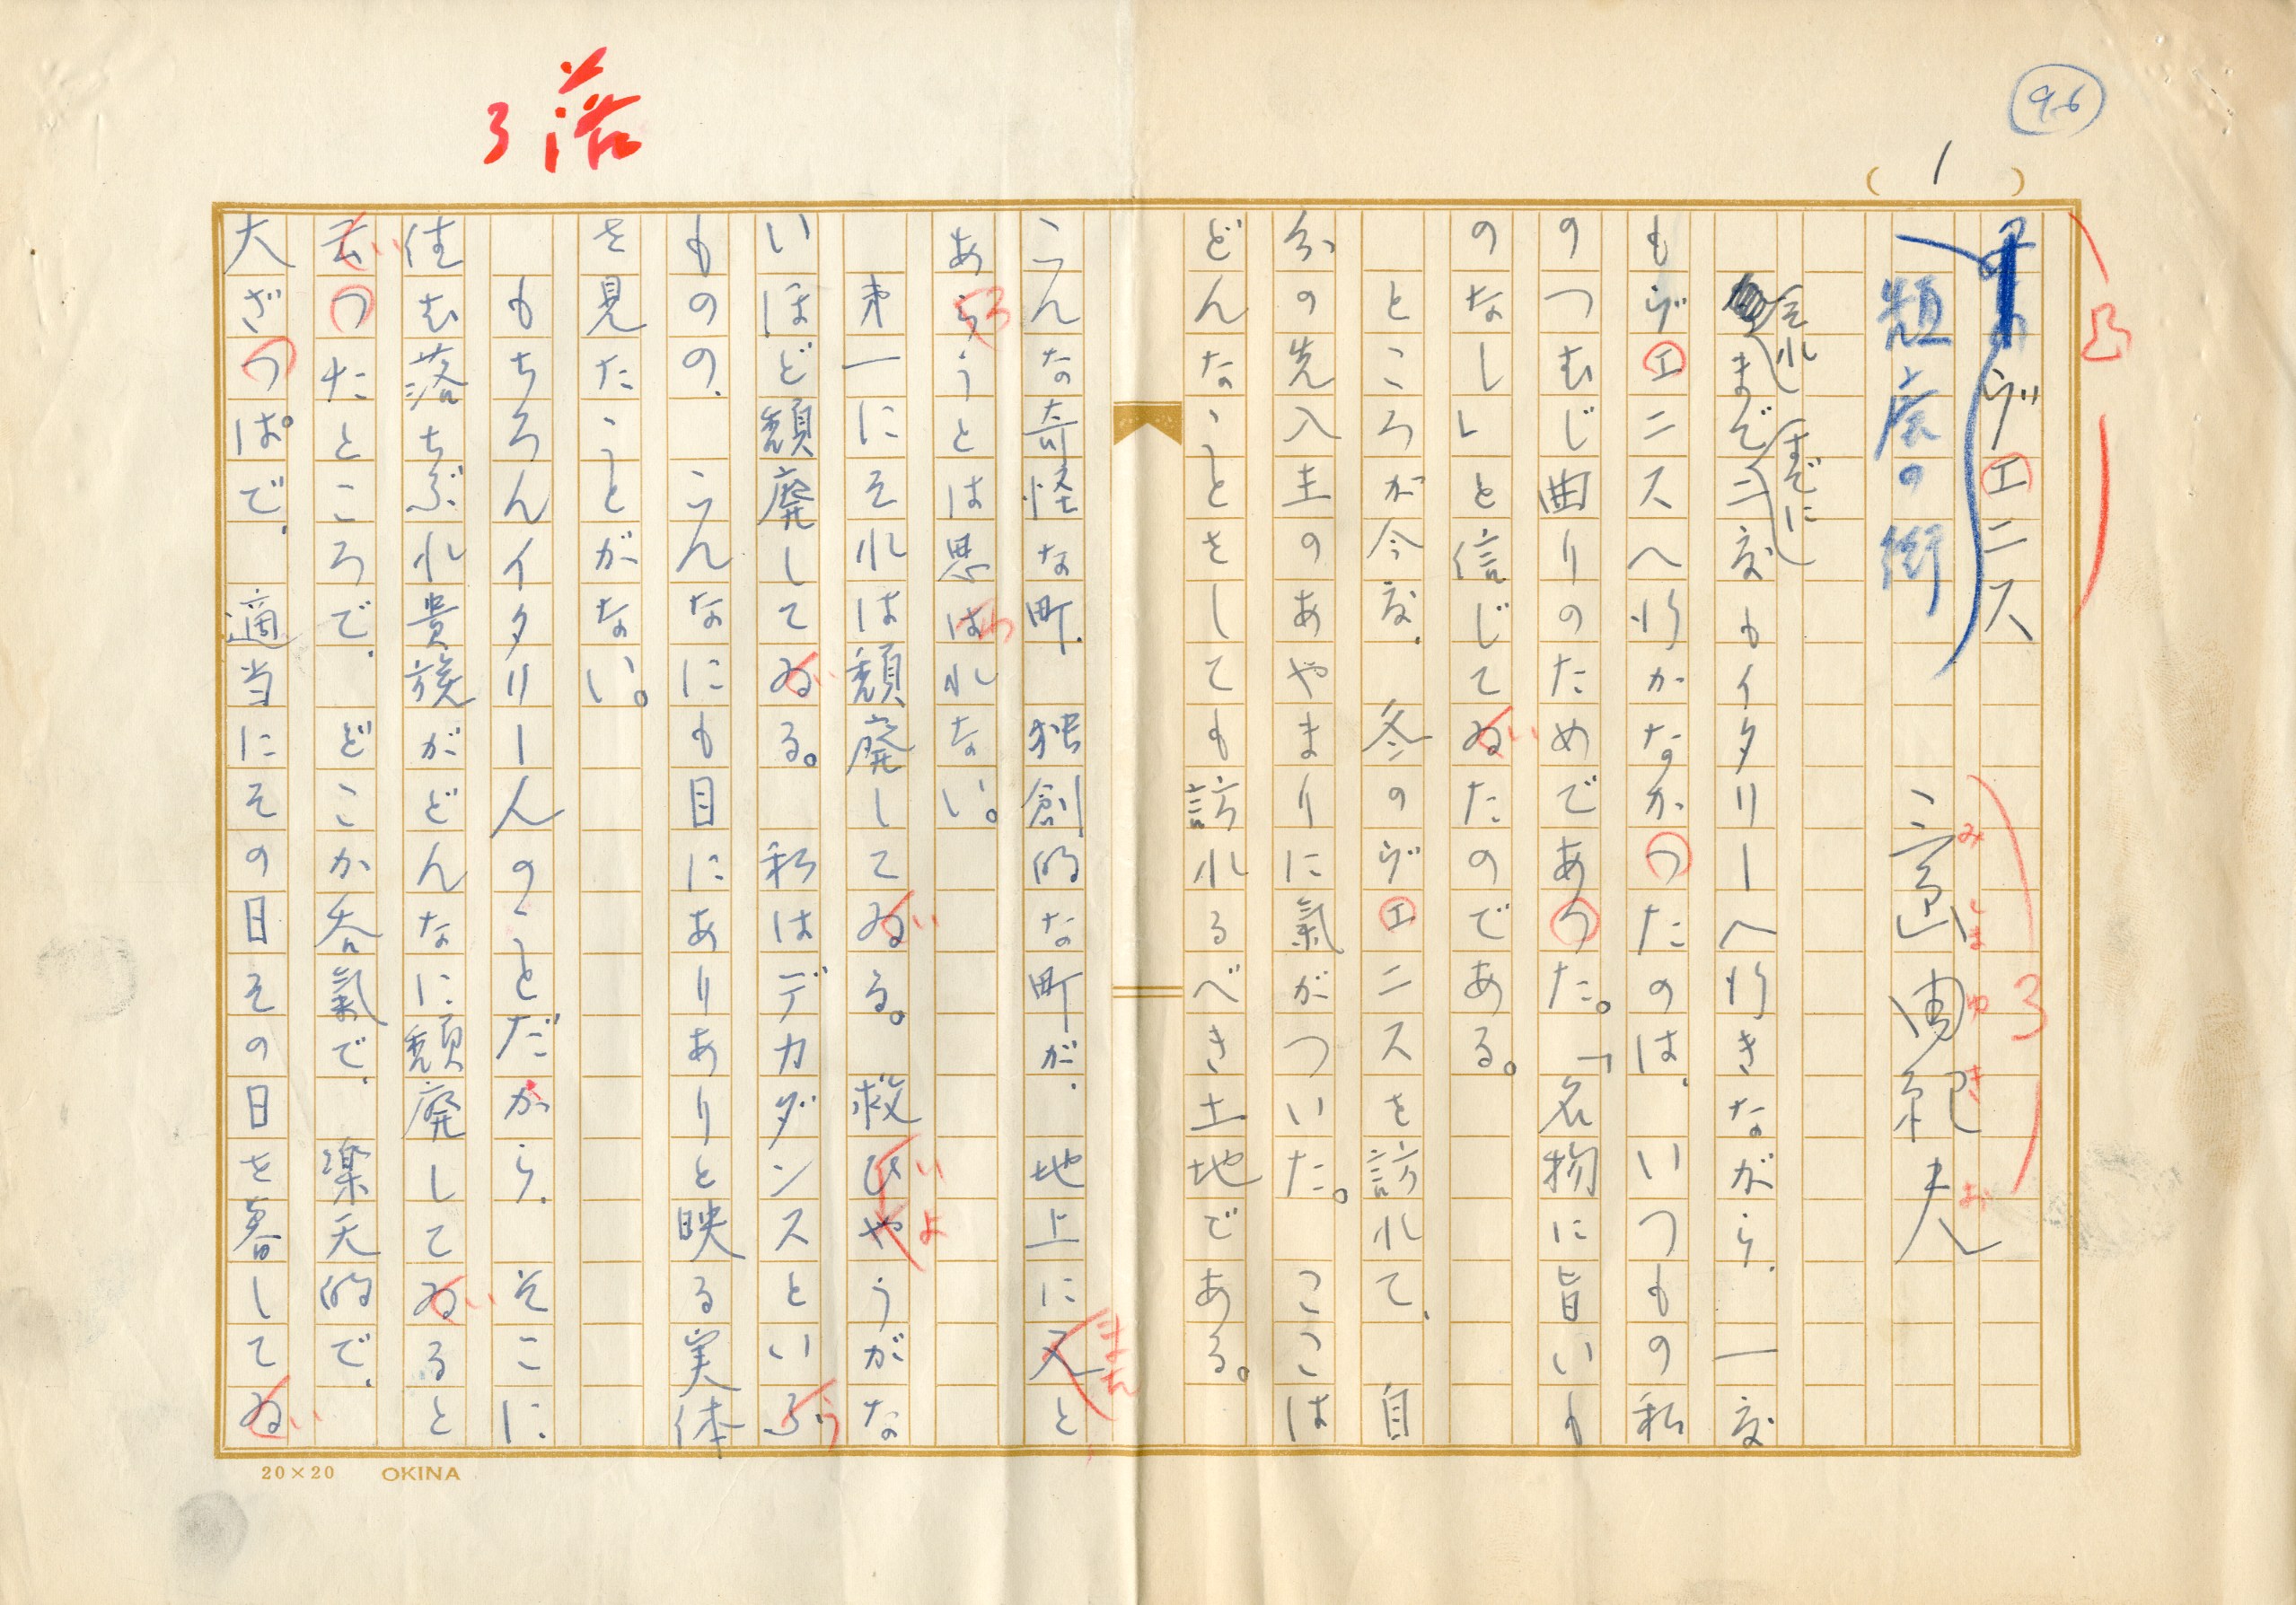 96
( 1 )
3落
ヴエニス
頽廃の街
三島由紀夫
みしまゆきお
3
それまですでに二度もイタリーへ行きながら、一度
もヴエニスへ行かなかつたのは、いつもの私
のつむじ曲りのためであつた。「名物に旨いも
のなし」と信じてゐたのである。
ところが今度、冬のヴエニスを訪れて、自
分の先入主のあやまりに氣がついた。ここは
どんなことをしても訪れるべき土地である。
こんな奇怪な町、独創的な町が、地上に又と
また
あらうとは思はれない。
ろ
わ
第一にそれは頽廃してゐる。救ひやうがな
い
い
よ
いほど頽廃してゐる。私はデカダンスといふ
い
う
もの の、こんなにも目にありありと映る実体
を見たことがない。
もちろんイタリー人のことだから、そこに
住む落ちぶれ貴族がどんなに頽廃してゐると
い
云つたところで、どこか呑氣で、楽天的で、
い
大ざつぱで、適当にその日その日を暮してゐ
い
20×20 OKINA